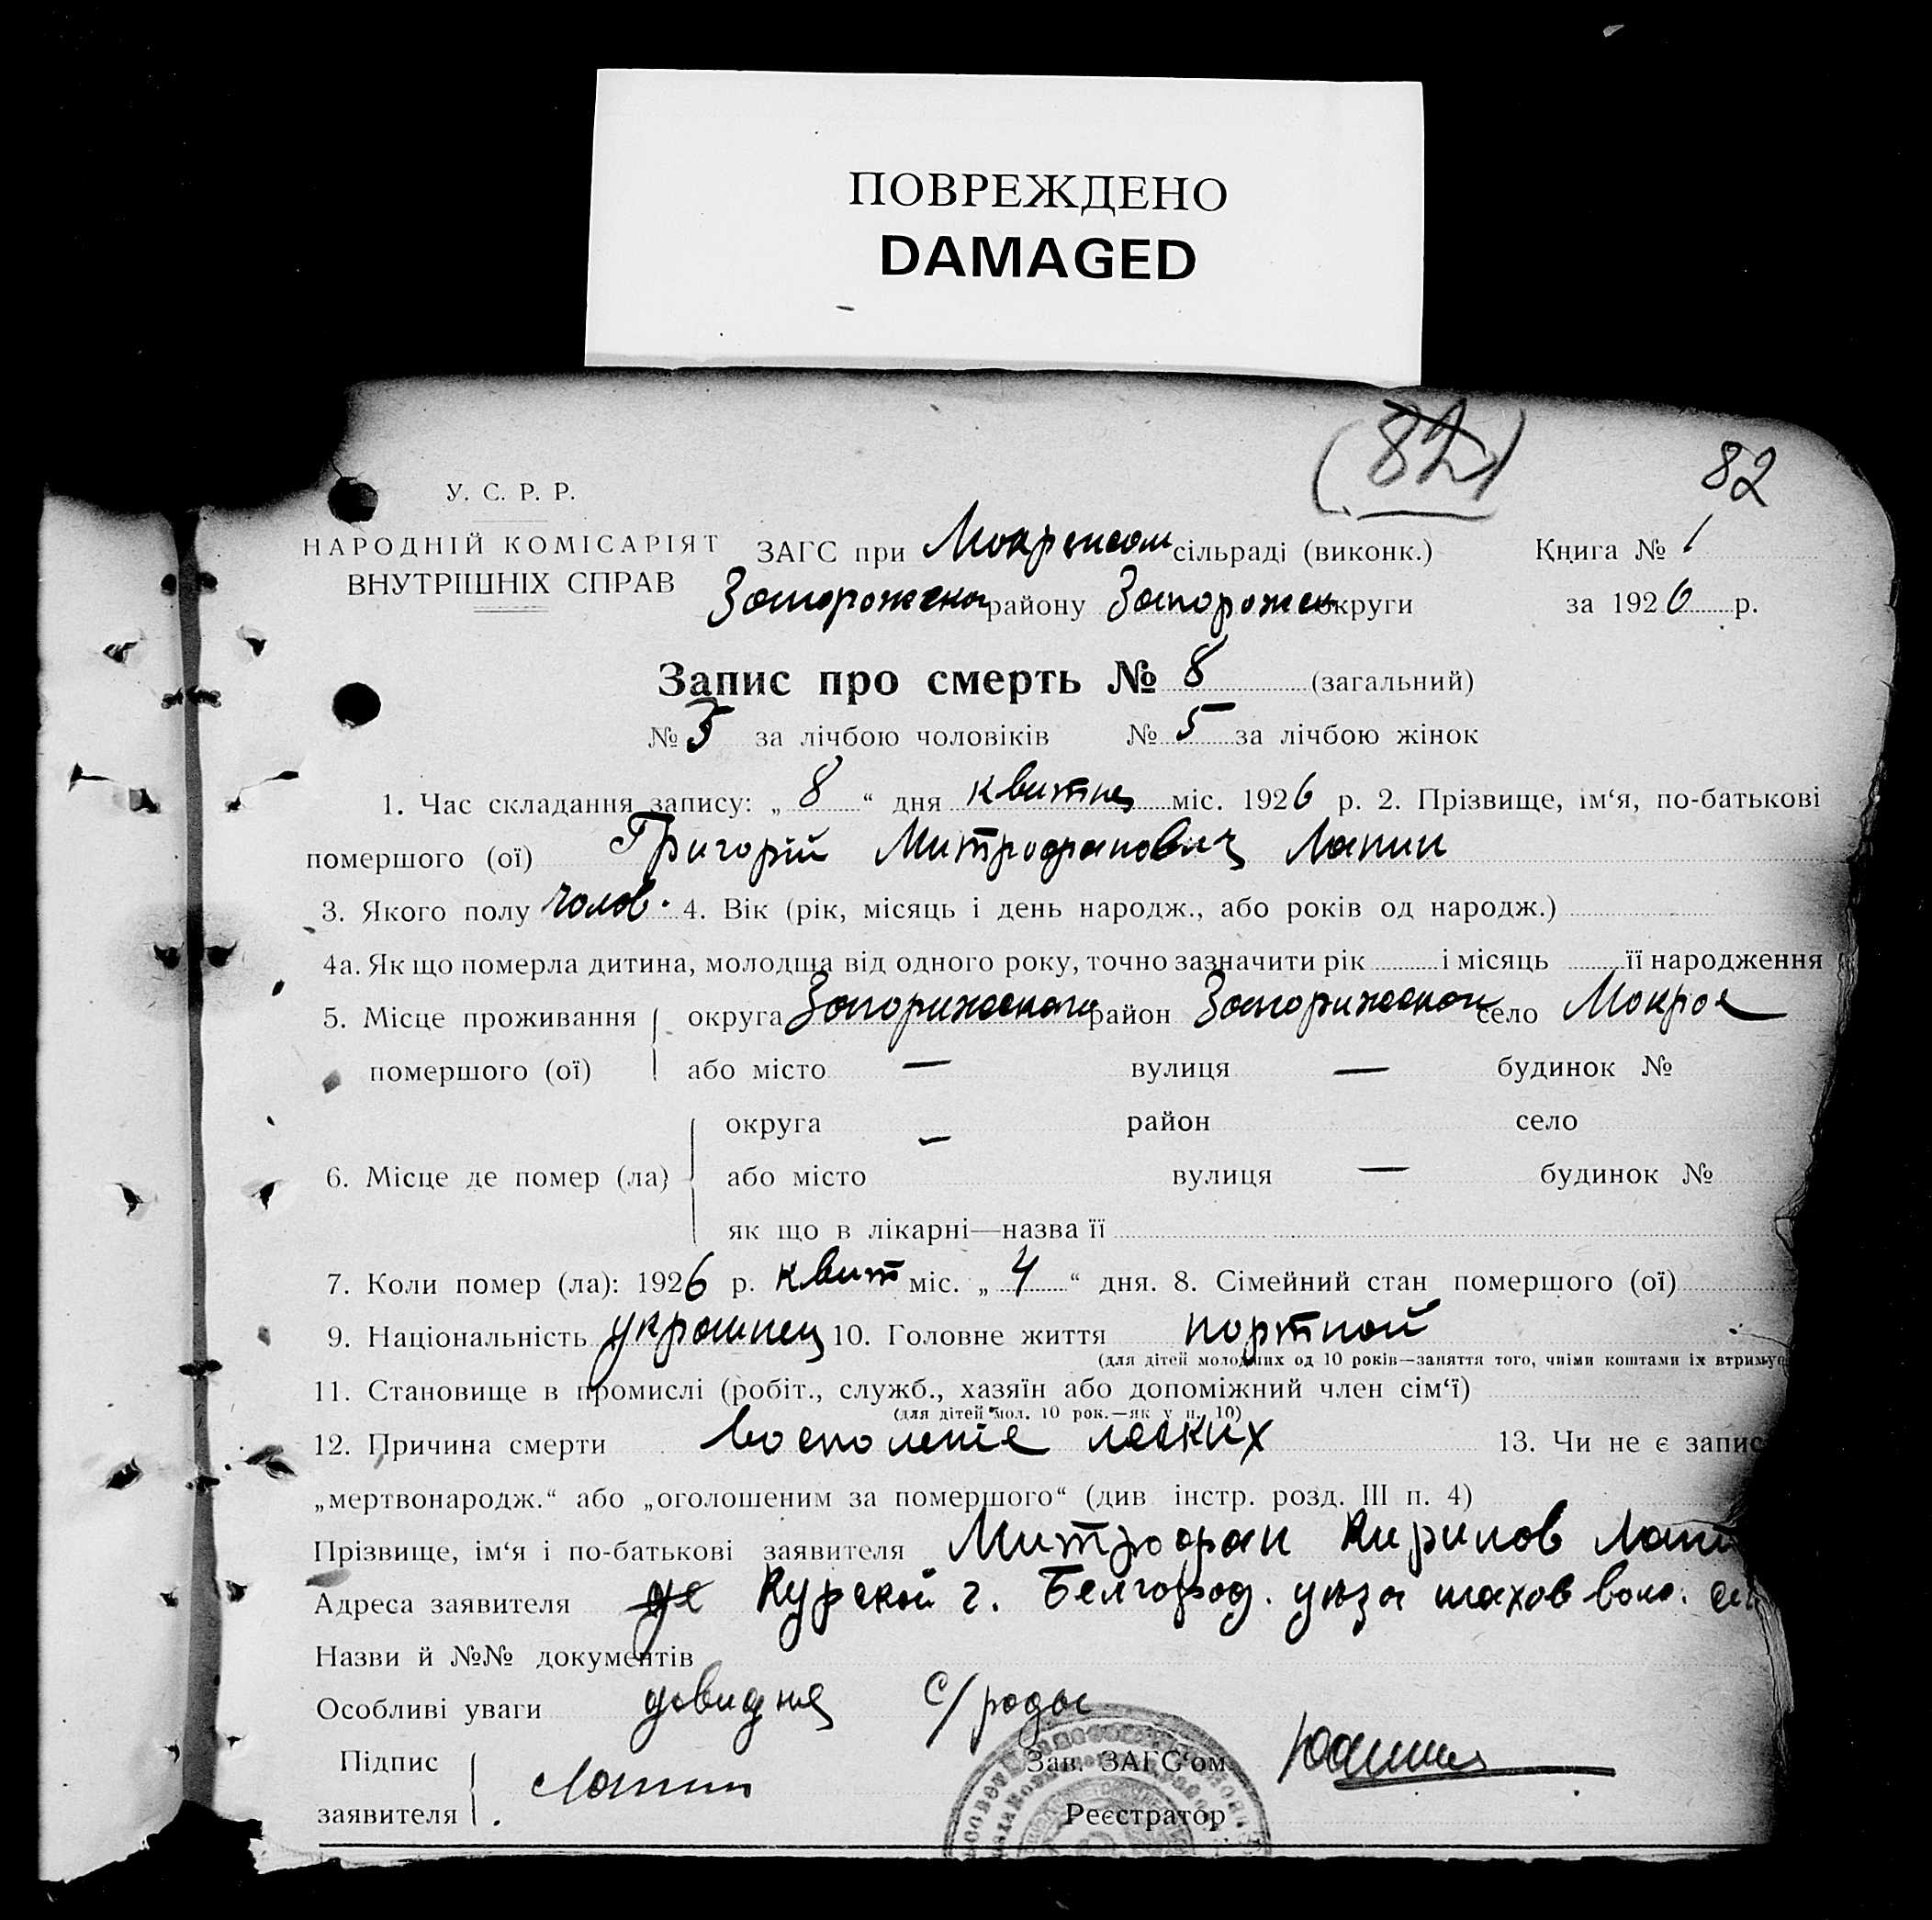 ПОВРЕЖДЕНО
DAMAGED
(82)
82
У. С. Р. Р.
НАРОДНІЙ КОМІСАРІЯТ
ВНУТРІШНІХ СПРАВ
ЗАГС при сільраді (виконк.) Книга № 1
району округи за 1926 р.
Запис про смерть № 8 (загальний)
№ 3 за лічбою чоловіків № 5 за лічбою жінок
1. Час складання запису: „ 8 “ дня квитня міс. 1926 р. 2. Прізвище, ім‘я, по-батькові
помершого (ої) Григорій Митрофанович Лапин
3. Якого полу чолов. 4. Вік (рік, місяць і день народж., або років од народж.)
4а. Як що померла дитина, молодша від одного року, точно зазначити рік і місяць її народження
5. Місце проживання округа район село Мокрое
помершого (ої) або місто — вулиця — будинок №
округа — район село
6. Місце де помер (ла) або місто вулиця — будинок №
як що в лікарні—назва її
7. Коли помер (ла): 1926 р. квит міс. „ 4 “ дня. 8. Сімейний стан помершого (ої)
9. Національність украинец 10. Головне життя портной
(для дітей молодших од 10 років—заняття того, чиїми коштами їх втримує
11. Становище в промислі (робіт., служб., хазяїн або допоміжний член сім‘ї)
(для дітей мол. 10 рок.—як у п. 10)
12. Причина смерти легких 13. Чи не є запис
„мертвонародж.“ або „оголошеним за помершого“ (див. інстр. розд. III п. 4)
Прізвище, ім‘я і по-батькові заявителя Митрофан Кирилов
Адреса заявителя Курской г. Белгород. уезда шахов воло.
Назви й №№ документів
Особливі уваги с/рады
Підпис
заявителя Лапин
Зав. ЗАГС‘ом
Реєстратор